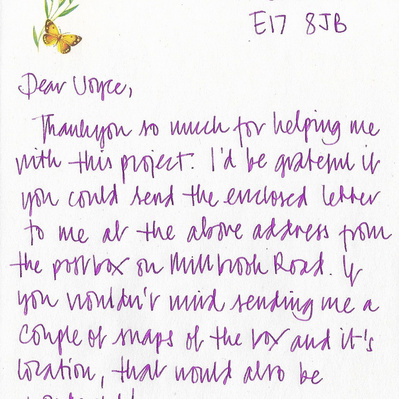 E17 8JB
Dear Voyce,
Thankyou so much for helping me
with this project. I'd be grateful if
you could send the enclosed letter
to me at the above address from
the postbox on Millbrook Road. If
you wouldn't mind sending me a
couple of snaps of the box and it's
location, that would also be